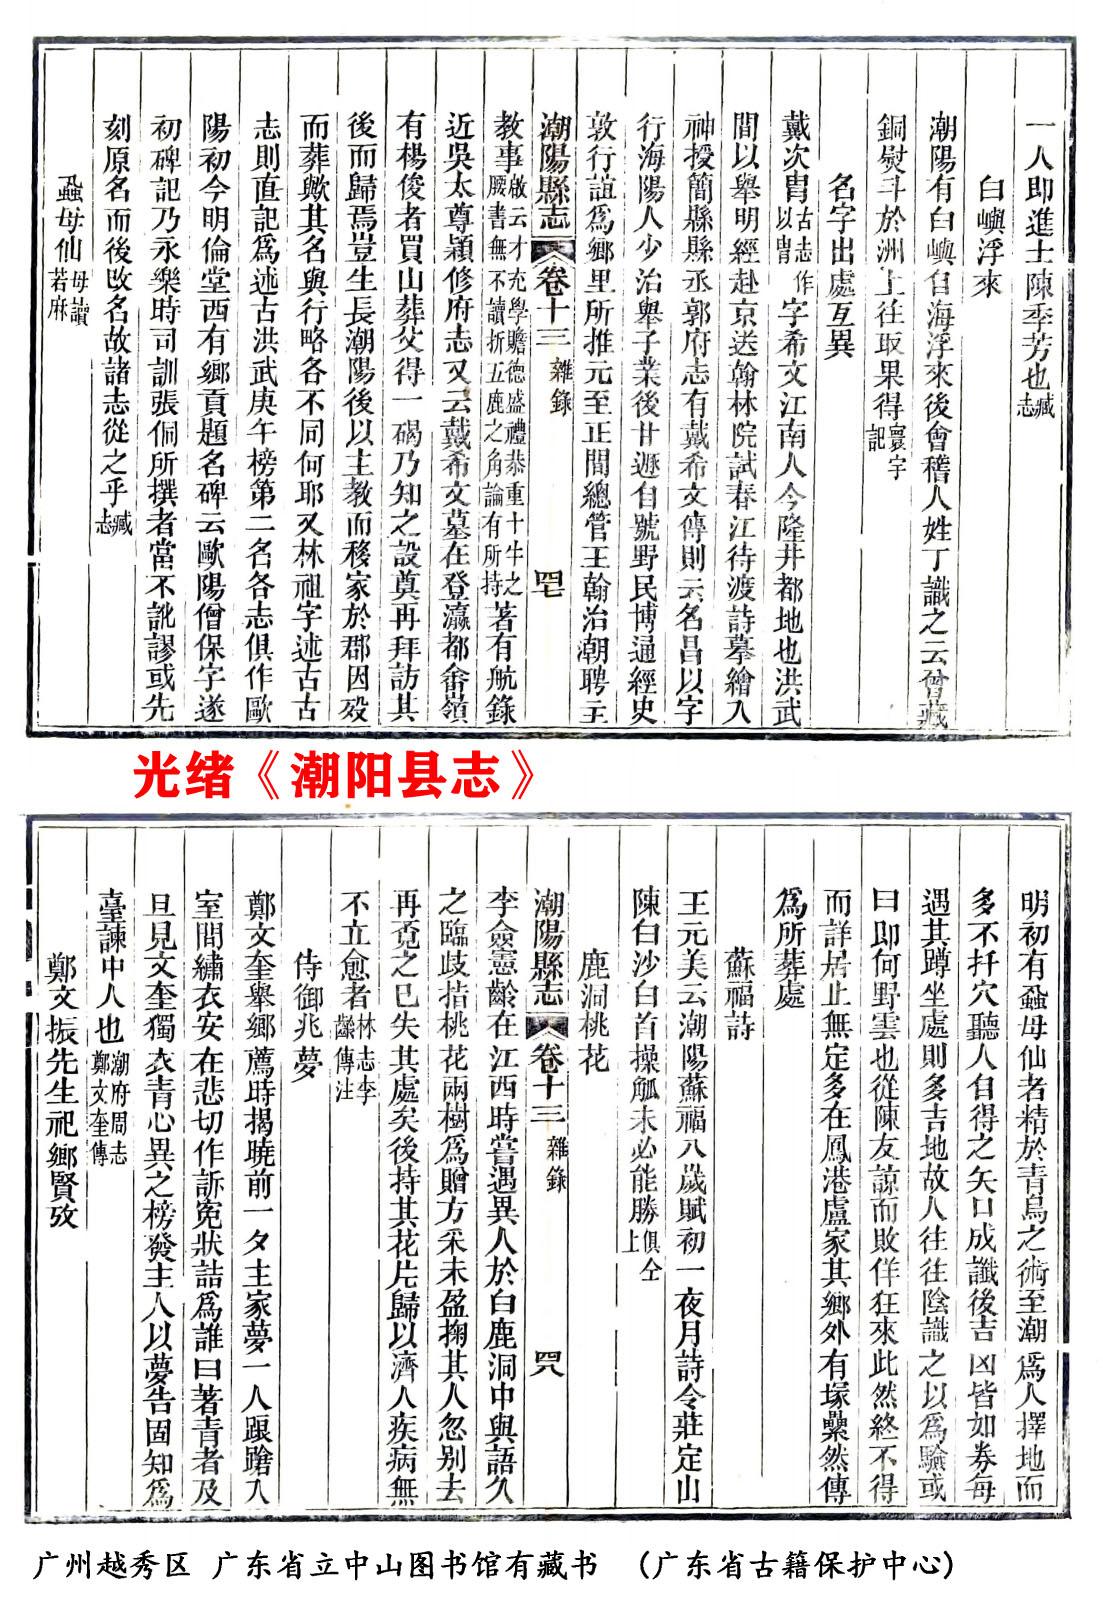 一人即進士陳李芳也臧志
白嶼浮來
潮陽有白嶼自海浮來後會稽人姓丁識之云曾藏
銅熨斗於洲上往取果得寰宇記
名字出處互異
戴次冑古志作以冑字希文江南人今隆井都地也洪武
間以舉明經赴京送翰林院試春江待渡詩摹繪入
神授簡縣縣丞郭府志有戴希文傳則云名昌以字
行海陽人少治舉子業後甘遯自號野民博通經史
敦行誼爲鄉里所推元至正間總管王翰治潮聘主
潮陽縣志 卷十三 雜錄 四七
教事啟云才充學贍德盛禮恭重十牛之腰書無不讀折五鹿之角論有所持著有航錄
近吳太尊穎修府志又云戴希文墓在登瀛都畬嶺
有楊俊者買山葬父得一碣乃知之設奠再拜訪其
後而歸焉豈生長潮陽後以主教而移家於郡因歿
而葬歟其名與行略各不同何耶又林祖字述古古
志則直記爲述古洪武庚午榜第二名各志俱作歐
陽初今明倫堂西有鄉貢題名碑云歐陽僧保字遂
初碑記乃永樂時司訓張侗所撰者當不訛謬或先
刻原名而後改名故諸志從之乎臧志
蝨母仙母讀若麻
光绪《潮阳县志》
明初有蝨母仙者精於青烏之術至潮爲人擇地而
多不扦穴聽人自得之矢口成讖後吉凶皆如券每
遇其蹲坐處則多吉地故人往往陰識之以爲驗或
曰即何野雲也從陳友諒而敗佯狂來此然終不得
而詳居止無定多在鳳港盧家其鄉外有塚纍然傳
爲所葬處
蘇福詩
王元美云潮陽蘇福八歲賦初一夜月詩令莊定山
陳白沙白首操觚未必能勝俱仝上
鹿洞桃花
潮陽縣志 卷十三 雜錄 四八
李僉憲齡在江西時嘗遇異人於白鹿洞中與語久
之臨歧指桃花兩樹爲贈方采未盈掬其人忽別去
再覓之已失其處矣後持其花片歸以濟人疾病無
不立愈者林志李齡傳注
侍御兆夢
鄭文奎舉鄉薦時揭曉前一夕主家夢一人踉蹌入
室間繡衣安在悲切作訴冤狀詰爲誰曰著青者及
旦見文奎獨衣青心異之榜發主人以夢告固知爲
臺諫中人也潮府周志鄭文奎傳
鄭文振先生祀鄉賢攷
广州越秀区 广东省立中山图书馆有藏书 （广东省古籍保护中心）